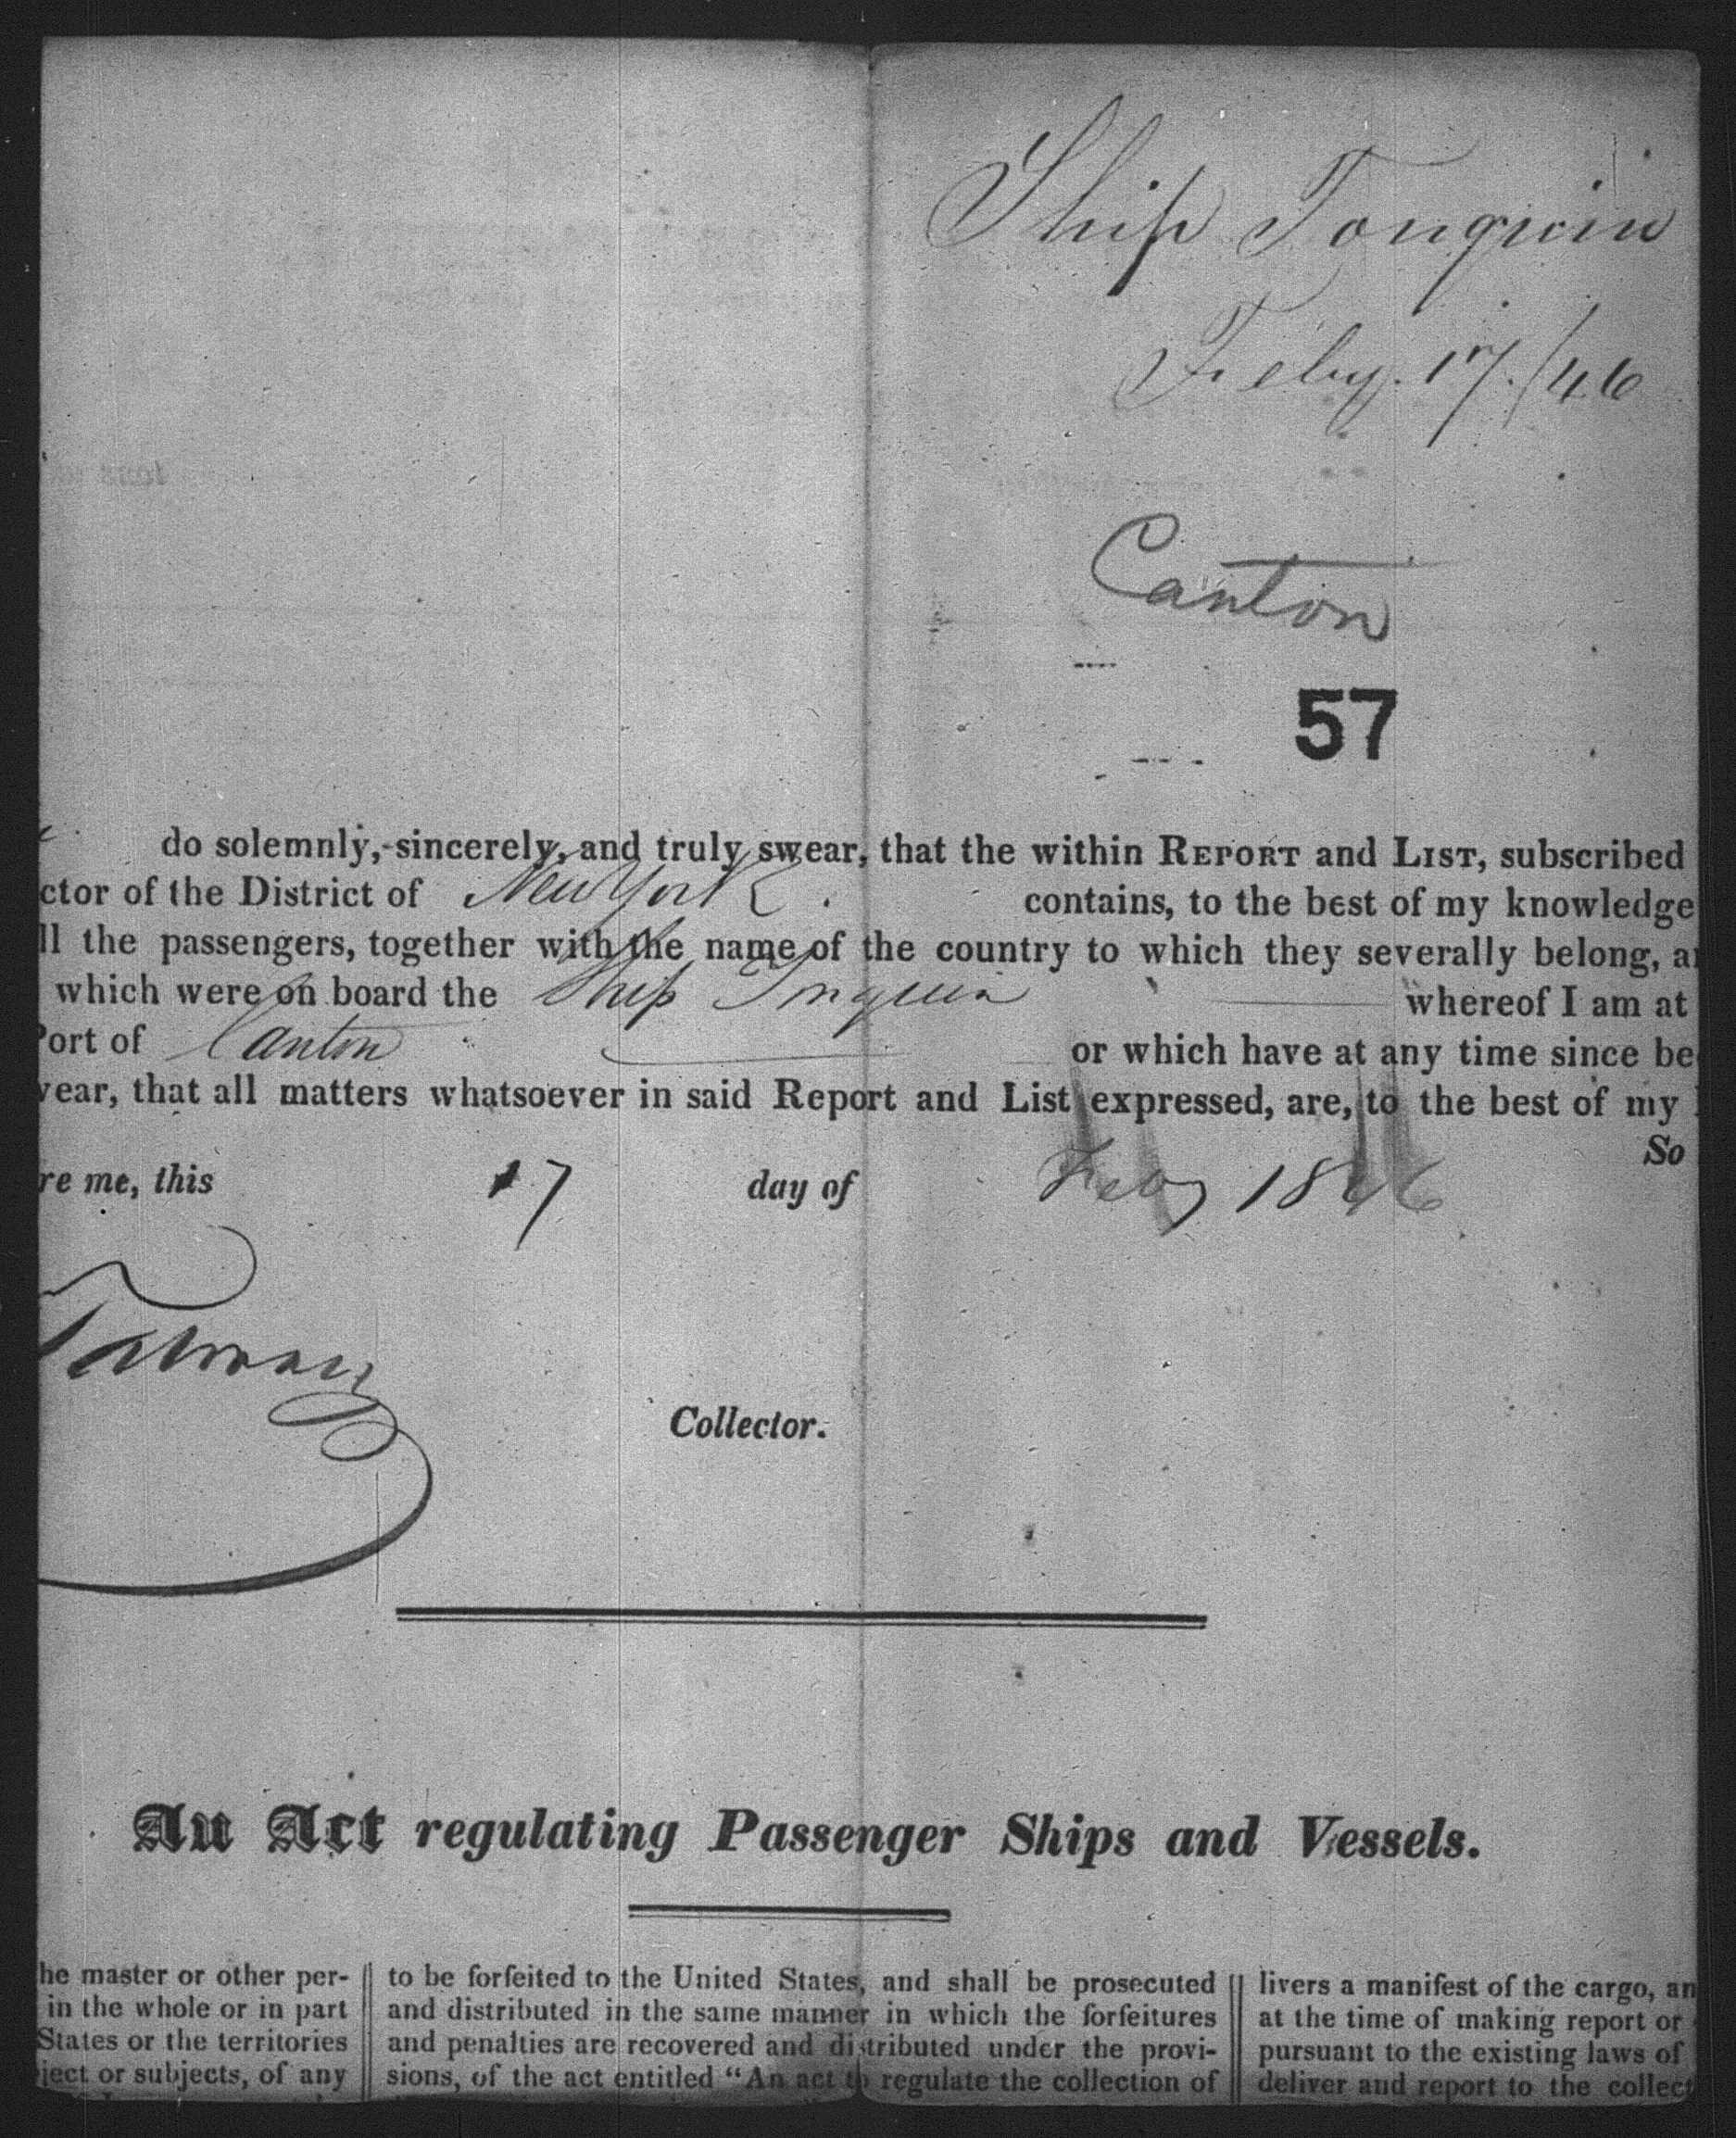 Ship Tonquin
Feby. 17./46
Canton
57
do solemnly, sincerely, and truly swear, that the within REPORT and LIST, subscribed
ctor of the District of New York. contains, to the best of my knowledge
ll the passengers, together with the name of the country to which they severally belong, a
which were on board the Ship Tonquin whereof I am at
Port of Canton or which have at any time since be
wear, that all matters whatsoever in said Report and List expressed, are, to the best of my
So
re me, this 17 day of Feby 1846
Collector.
An Act regulating Passenger Ships and Vessels.
he master or other per-
in the whole or in part
States or the territories
ject or subjects, of any
to be forfeited to the United States, and shall be prosecuted
and distributed in the same manner in which the forfeitures
and penalties are recovered and distributed under the provi-
sions, of the act entitled "An act to regulate the collection of
livers a manifest of the cargo, an
at the time of making report or
pursuant to the existing laws of
deliver and report to the collect